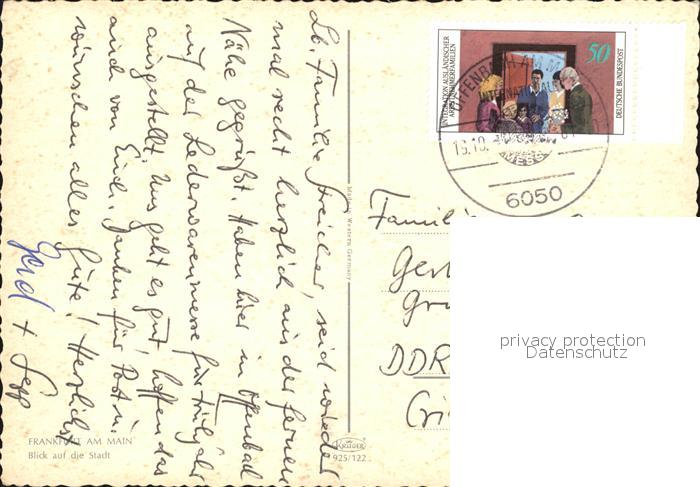 Lb. Familie Streicher, seid wieder
mal recht herzlich aus der fernen
Nähe gegrüßt. Haben hier in Offenbach
auf der Lederwarenmesse für Frühjahr
ausgestellt. Uns geht es gut, hoffen das
auch von Euch. Danken für Post u.
wünschen alles Gute! Herzlichst
Gerd + Sepp
FRANKFURT AM MAIN
Blick auf die Stadt
Made in Western Germany
KRÜGER
925/122
INTEGRATION AUSLÄNDISCHER
ARBEITNEHMERFAMILIEN
50
DEUTSCHE BUNDESPOST
OFFENBACH AM MAIN
INTERNATIONALE
MESSE
6050
Famil
Ger
Gr
DDR
Cri
privacy protection
Datenschutz